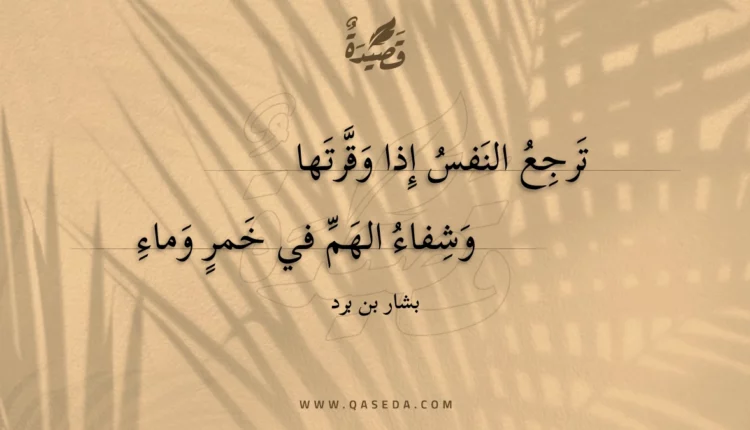 قَصِيدَةٌ
تَرجِعُ النَفسُ إِذا وَقَّرتَها
وَشِفاءُ الهَمِّ في خَمرٍ وَماءِ
بشار بن برد
WWW.QASEDA.COM